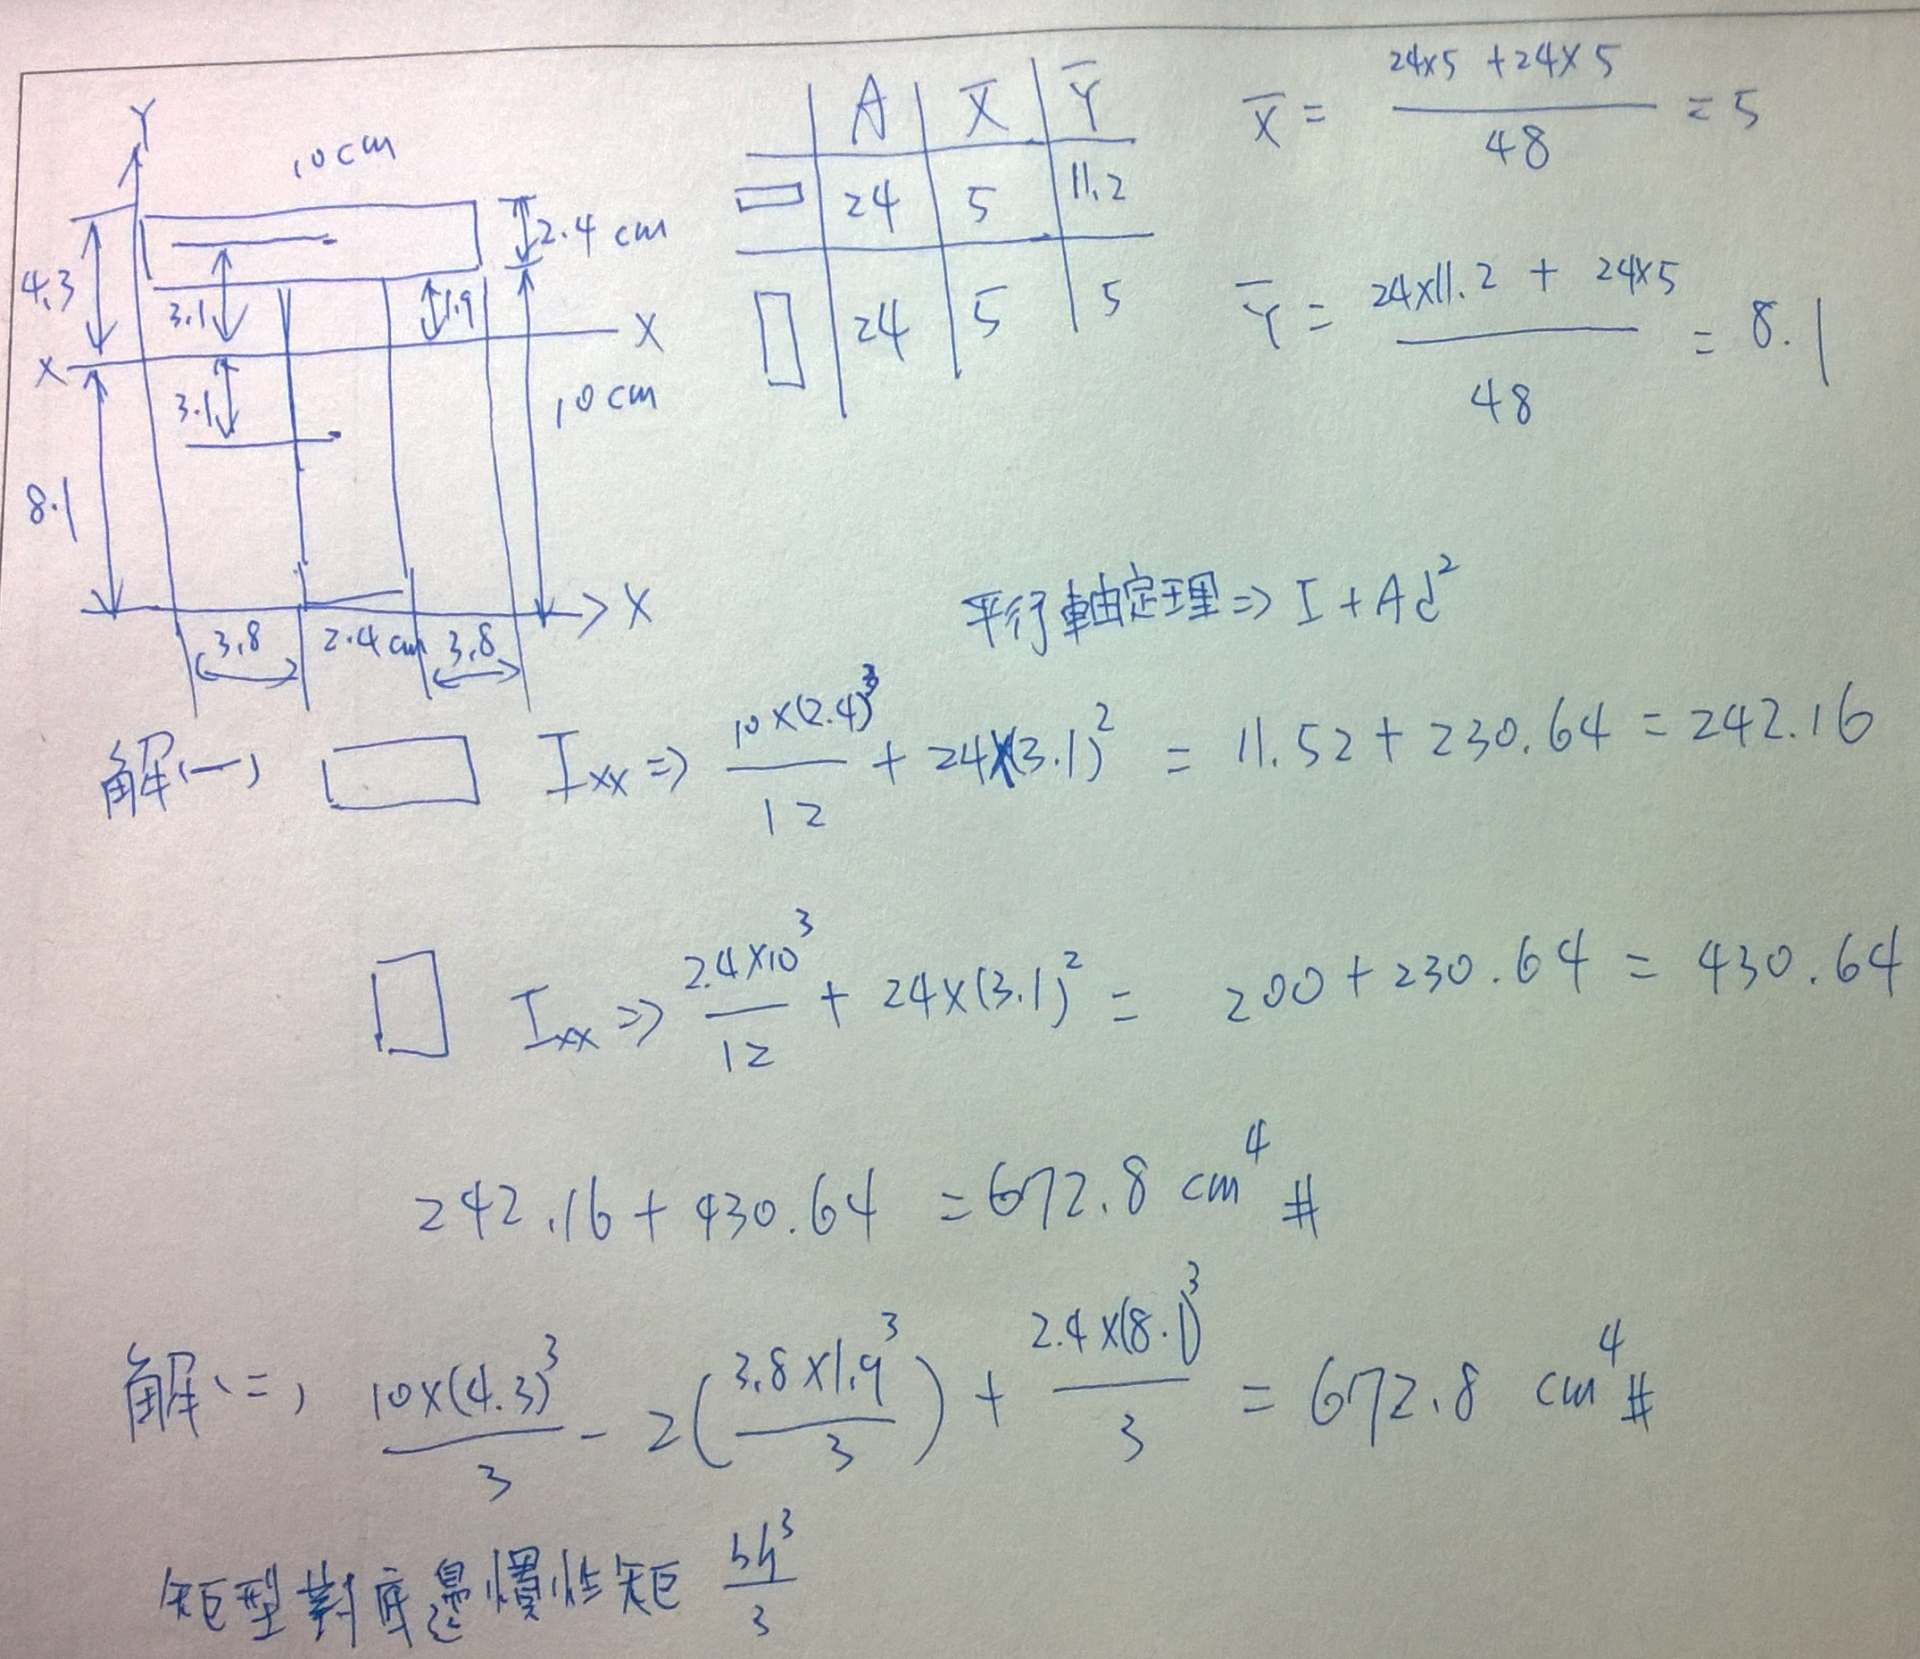 Y
10cm
2.4 cm
4.3
3.1
1.9
X
X
3.1
10cm
8.1
X
3.8
2.4 cm
3.8
A X̅ Y̅
24 5 11.2
24 5 5
X̅ = (24×5 + 24×5)/48 = 5
Y̅ = (24×11.2 + 24×5)/48 = 8.1
平行軸定理 => I + Ad²
解(一) Ixx => 10×(2.4)³/12 + 24×(3.1)² = 11.52 + 230.64 = 242.16
Ixx => 2.4×10³/12 + 24×(3.1)² = 200 + 230.64 = 430.64
242.16 + 430.64 = 672.8 cm⁴ #
解(二) 10×(4.3)³/3 - 2(3.8×1.9³/3) + 2.4×(8.1)³/3 = 672.8 cm⁴ #
矩型對底邊慣性矩 bh³/3